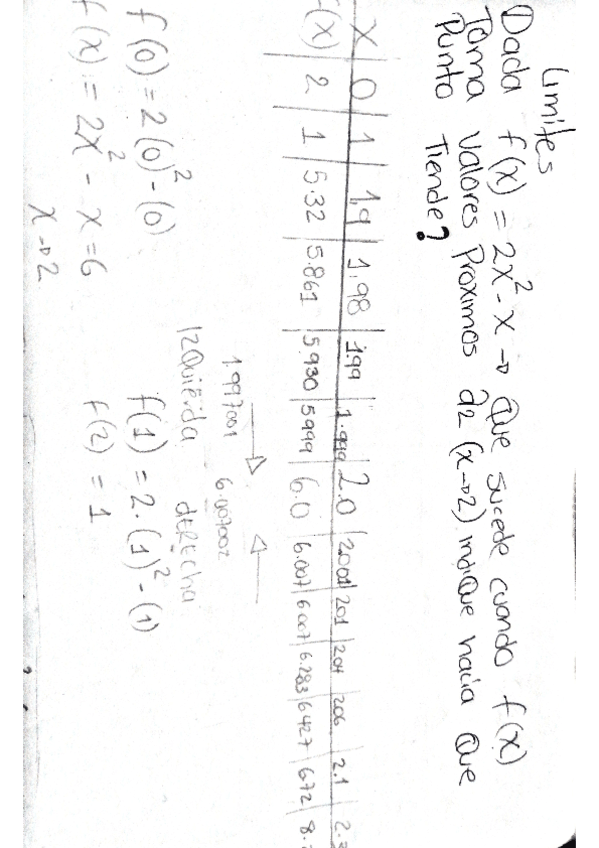 Limites
Dada f(x) = 2x² - x → Que sucede cuando f(x)
Toma valores Proximos a 2 (x→2) indique hacia Que
Punto Tiende?
x | 0 | 1 | 1,9 | 1,98 | 1.99 | 1.999 | 2.0 | 2.001 | 201 | 204 | 206 | 2.1
f(x) | 2 | 1 | 5.32 | 5.861 | 5.930 | 5999 | 6.0 | 6.007 | 6.007 | 6.283 | 6.427 | 6.72
1.997001 6.007002
Izquierda derecha
f(0) = 2(0)² - (0) f(1) = 2.(1)² - (1)
f(x) = 2x² - x = 6 f(2) = 1
x→2